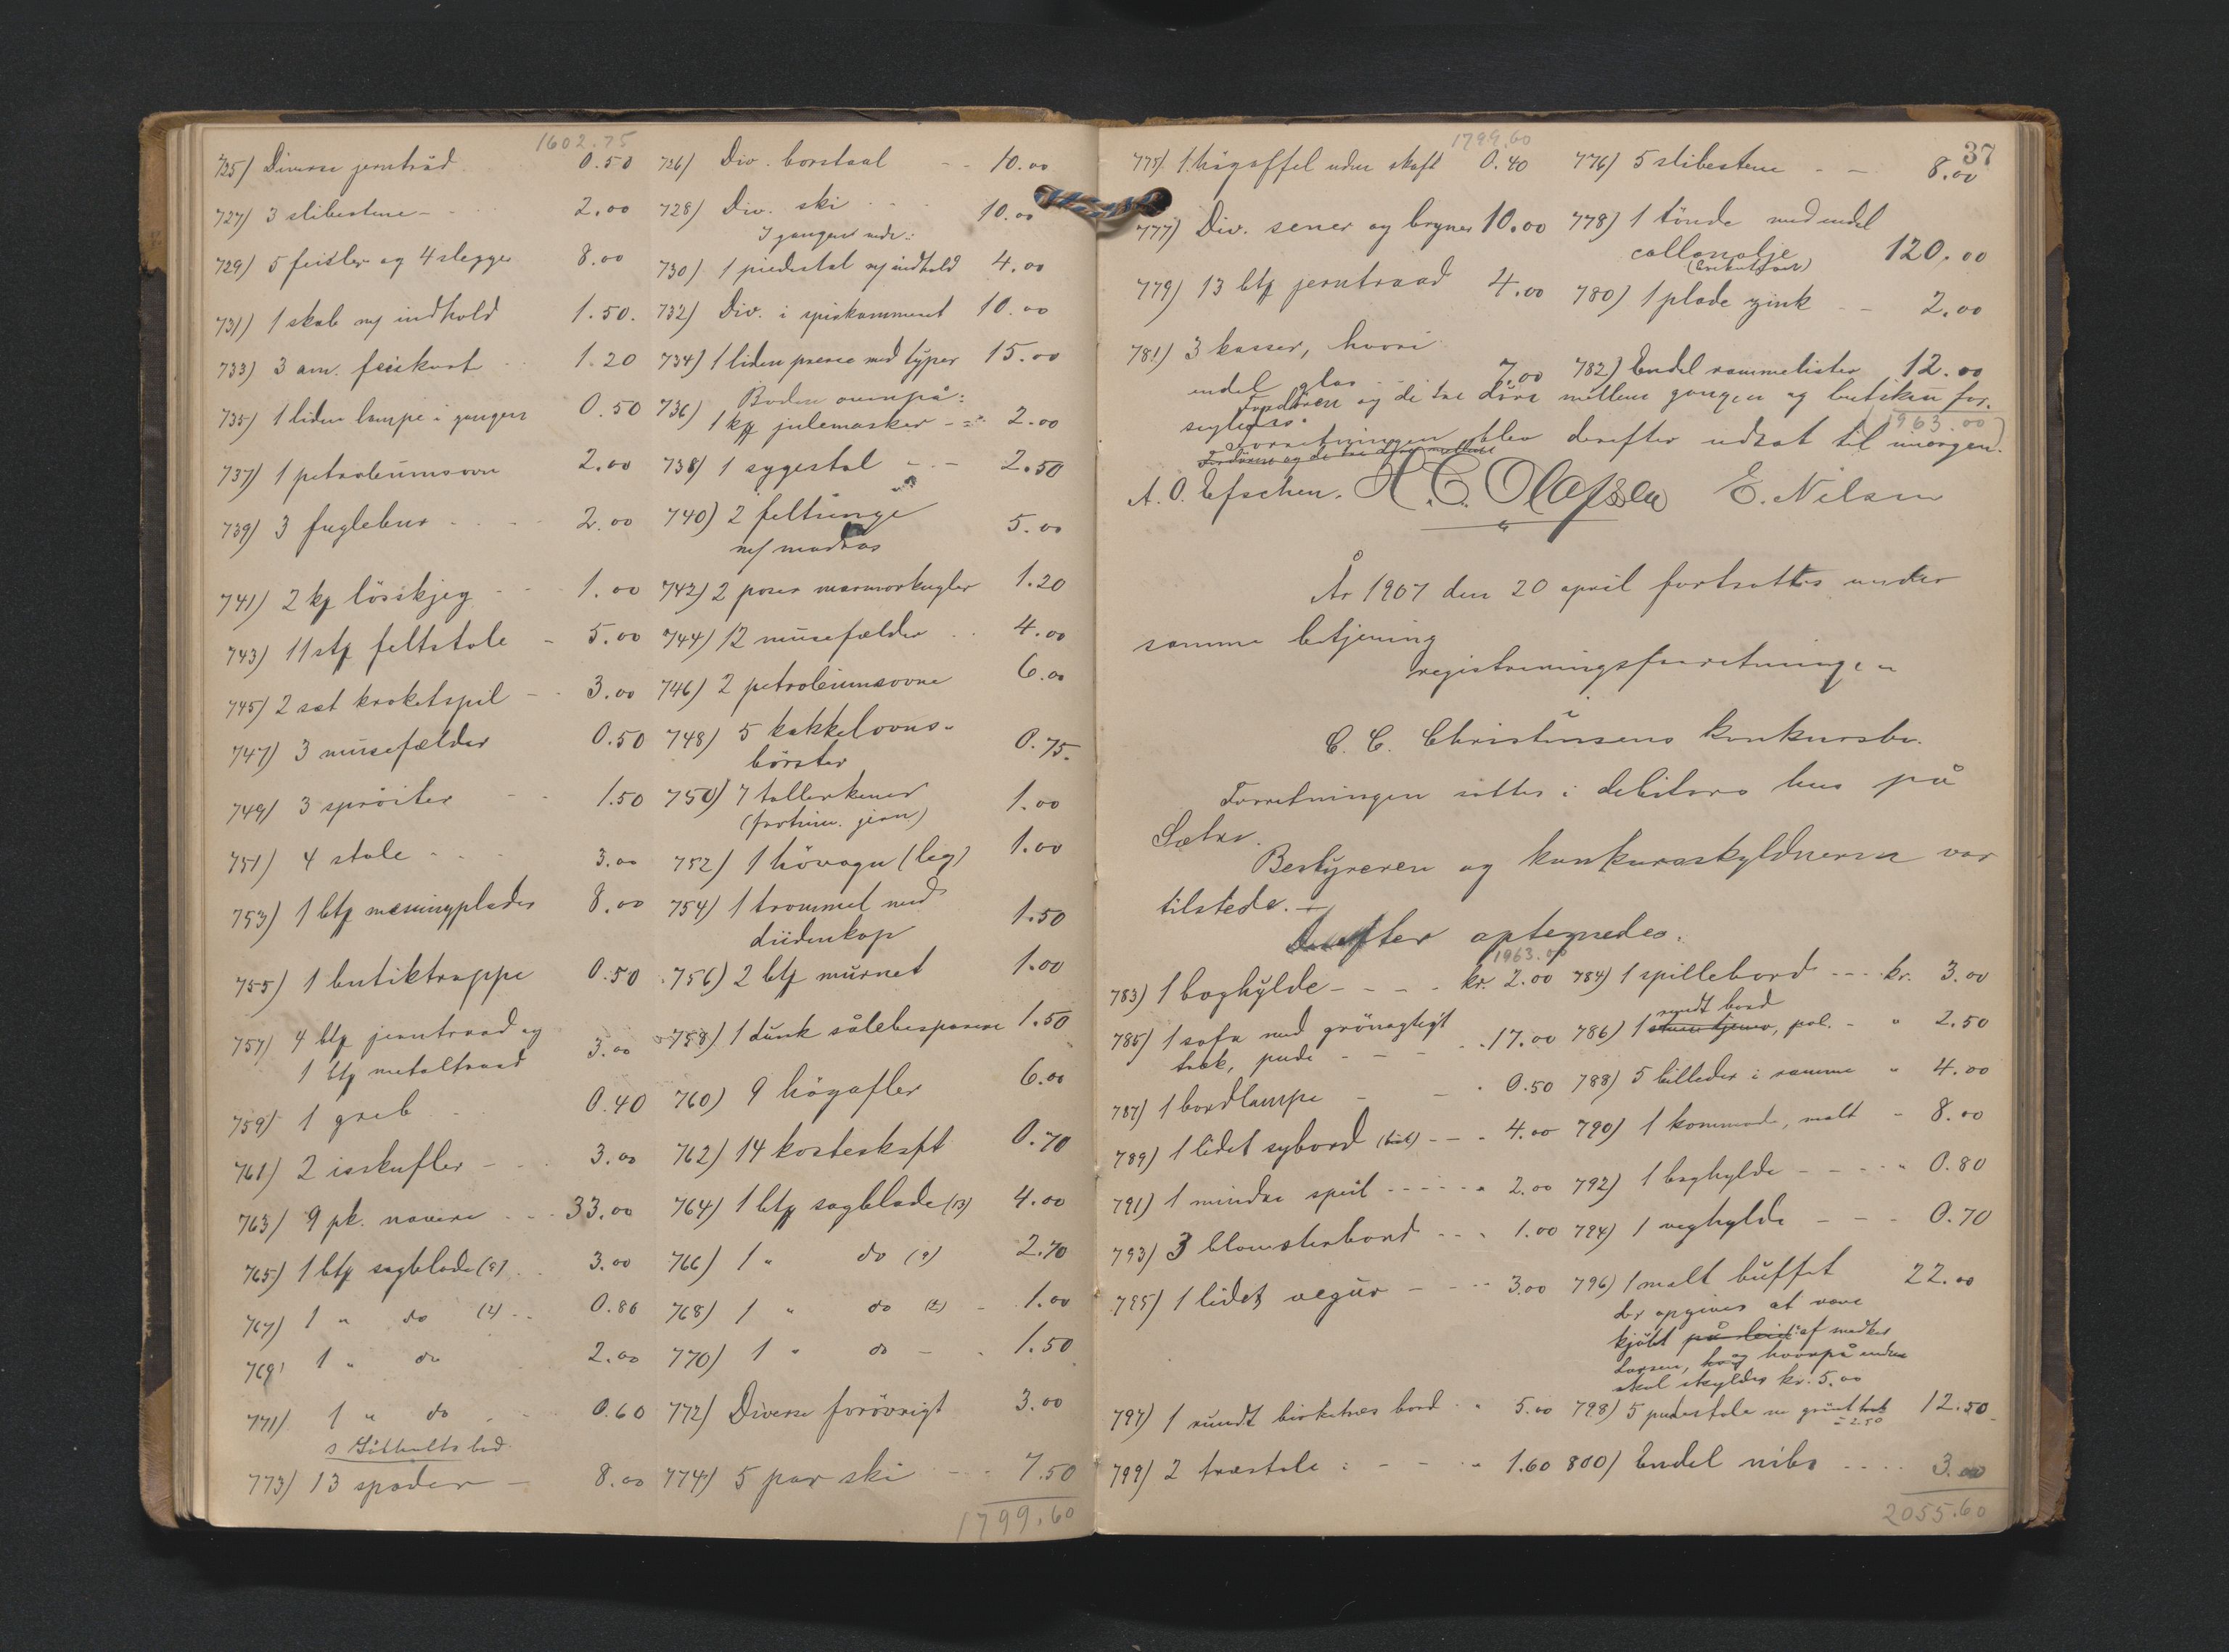 1602.75
725) Diverse jerntråd 0.50 726) Div. borstaal 10.00
727) 3 slibestene 2.00 728) Div. ski 10.00
I gangen nede:
729) 5 feisler og 4 slegger 8.00 730) 1 piedestal m/ indhold 4.00
731) 1 skab m/ indhold 1.50. 732) Div. i spiskammeret 10.00
733) 3 am. feiekost 1.20 734) 1 liden presse med typer 15.00
735) 1 liden lampe i gangen 0.50 736) Boden ovenpå:
1 kg julemasker 2.00
737) 1 petroleumsovn 2.00 738) 1 sygestol 2.50
739) 3 fuglebur 2.00 740) 2 feltsenge
m/ madras 5.00
741) 2 kg lösskjeg 1.00 742) 2 poser marmorkugler 1.20
743) 11 stk feltstole 5.00 744) 12 musefælder 4.00
745) 2 sæt kroketspil 3.00 746) 2 petroleumsovne 6.00
747) 3 musefælder 0.50 748) 5 kakkelovns-
börster 0.75.
749) 3 spröiter 1.50 750) 7 tallerkener
(fortin. jern) 1.00
751) 4 stole 3.00 752) 1 hövogn (leg) 1.00
753) 1 btg messingplader 8.00 754) 1 trommel med
1.50
755) 1 butiktrappe 0.50 756) 2 btg murnet 1.00
757) 4 btg jerntraad og
1 btg metaltraad 3.00 758) 1 dunk sålebesparere 1.50
759) 1 greb 0.40 760) 9 högafler 6.00
761) 2 isskufler 3.00 762) 14 kosteskaft 0.70
763) 9 pk. navere 33.00 764) 1 btg sagblade (13) 4.00
765) 1 btg sagblade (9) 3.00 766) 1 " do (9) 2.70
767) 1 " do (4) 0.80 768) 1 " do (2) 1.00
769) 1 " do 2.00 770) 1 " do 1.50
771) 1 " do 0.60 772) Diverse forövrigt 3.00
773) 13 spader 8.00 774) 5 par ski 7.50
1799.60
37
1799.60
775) 1 högaffel uden skaft 0.40 776) 5 slibestene 8.00
777) Div. sener og bryner 10.00 778) 1 tönde med endel
collanolje 120.00
779) 13 btg jerntraad 4.00 780) 1 plade zink 2.00
781) 3 kasser, hvori
endel glas 7.00 782) Endel rammelister 12.00
Fordören og de tre döre mellem gangen og butiken for-
segledes. 1963.00
Forretningen blev derefter udsat til imorgen.
Fordören og de tre döre mellem
A. O. Efschen. H. C. Olafssen E. Nilsen
År 1907 den 20 april fortsattes under
samme betjening
registreringsforretningen
i
C. C. Christensens konkursbo.
Forretningen sattes i debitors hus på
Sætre.
Bestyreren og konkursskyldneren var
tilstede.
Derefter optegnedes:
1963.00
783) 1 boghylde kr. 2.00 784) 1 spillebord kr. 3.00
785) 1 sofa med grönagtigt
træk, pude 17.00 786) 1 rundt bord, pol. " 2.50
787) 1 bordlampe 0.50 788) 5 billeder i ramme " 4.00
789) 1 lidet sybord 4.00 790) 1 kommode, malt " 8.00
791) 1 mindre speil " 2.00 792) 1 boghylde " 0.80
793) 3 blomsterbord 1.00 794) 1 veghylde 0.70
795) 1 lidet vegur 3.00 796) 1 malt buffet 22.00
der opgives at være
kjöbt på leie af snedker
Larsen, hvorpå endnu
skal skyldes kr. 5.00
797) 1 rundt birketræs bord " 5.00 798) 5 pudestole m grönt træk 12.50
à 2.50
799) 2 træstole " 1.60 800) Endel nips 3.00
2055.60